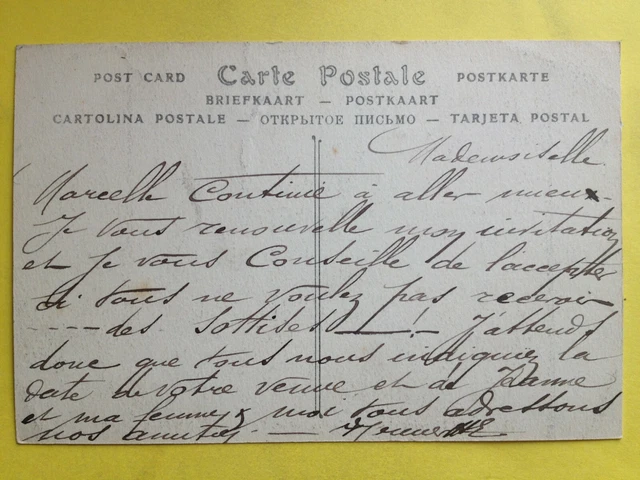 POST CARD Carte Postale POSTKARTE
BRIEFKAART — POSTKAART
CARTOLINA POSTALE — ОТКРЫТОЕ ПИСЬМО — TARJETA POSTAL
Mademoiselle
Marcelle Continue à aller mieux.
Je vous renouvelle mon invitation
et je vous Conseille de l'accepter
si vous ne voulez pas recevoir
---- des sottises — ! — J'attends
donc que vous nous indiquiez la
date de votre venue et de Jeanne
et ma femme & moi vous adressons
nos amitiés —